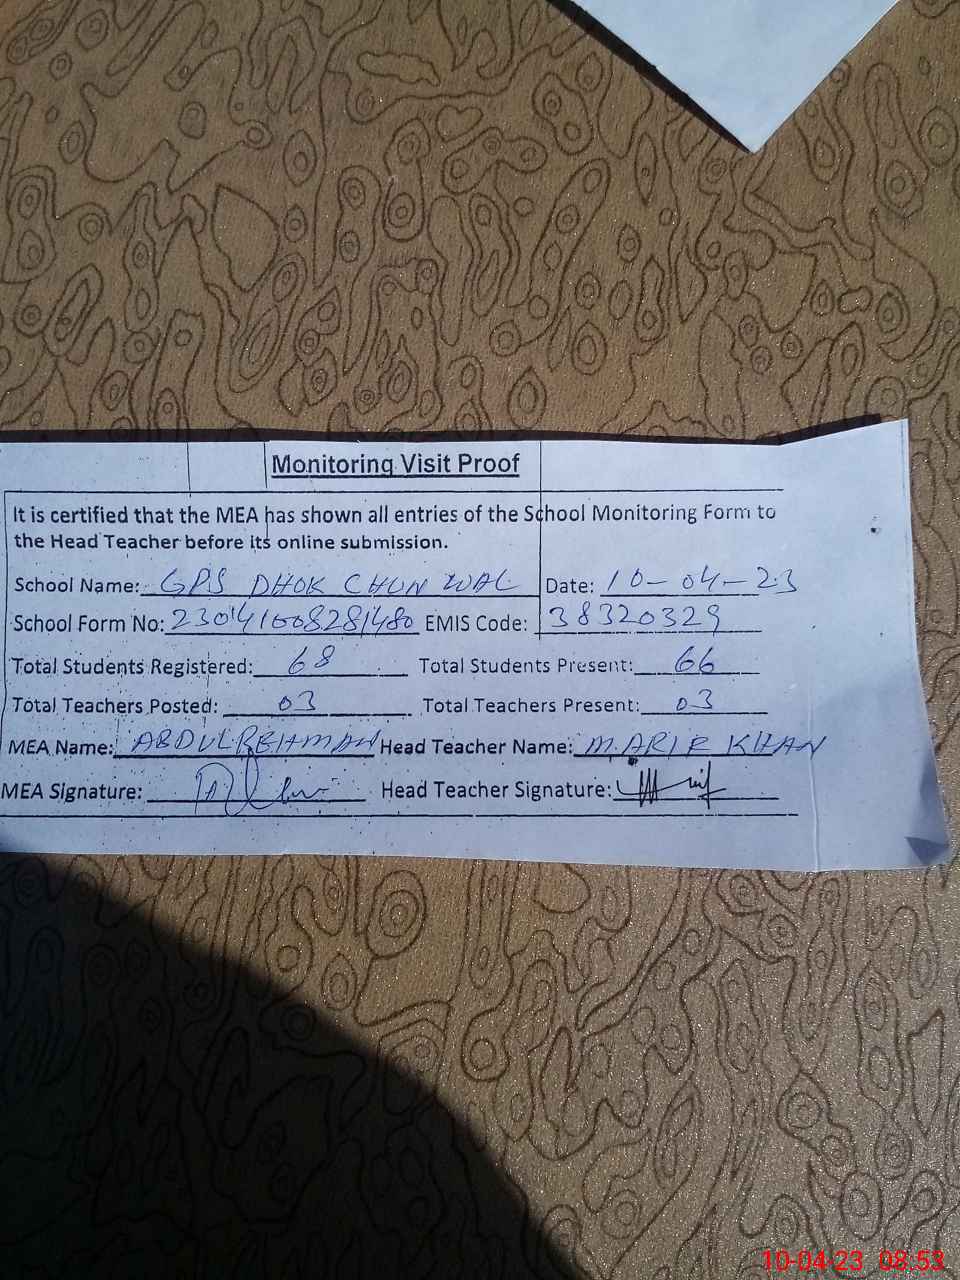 Monitoring Visit Proof
It is certified that the MEA has shown all entries of the School Monitoring Form to
the Head Teacher before its online submission.
School Name: GPS DHOK CHUNWAL Date: 10-04-23
School Form No: 23041008281480 EMIS Code: 38320329
Total Students Registered: 68 Total Students Present: 66
Total Teachers Posted: 03 Total Teachers Present: 03
MEA Name: ABDULREHMAN Head Teacher Name: M. ARIF KHAN
MEA Signature: Head Teacher Signature:
10-04-23 08:53